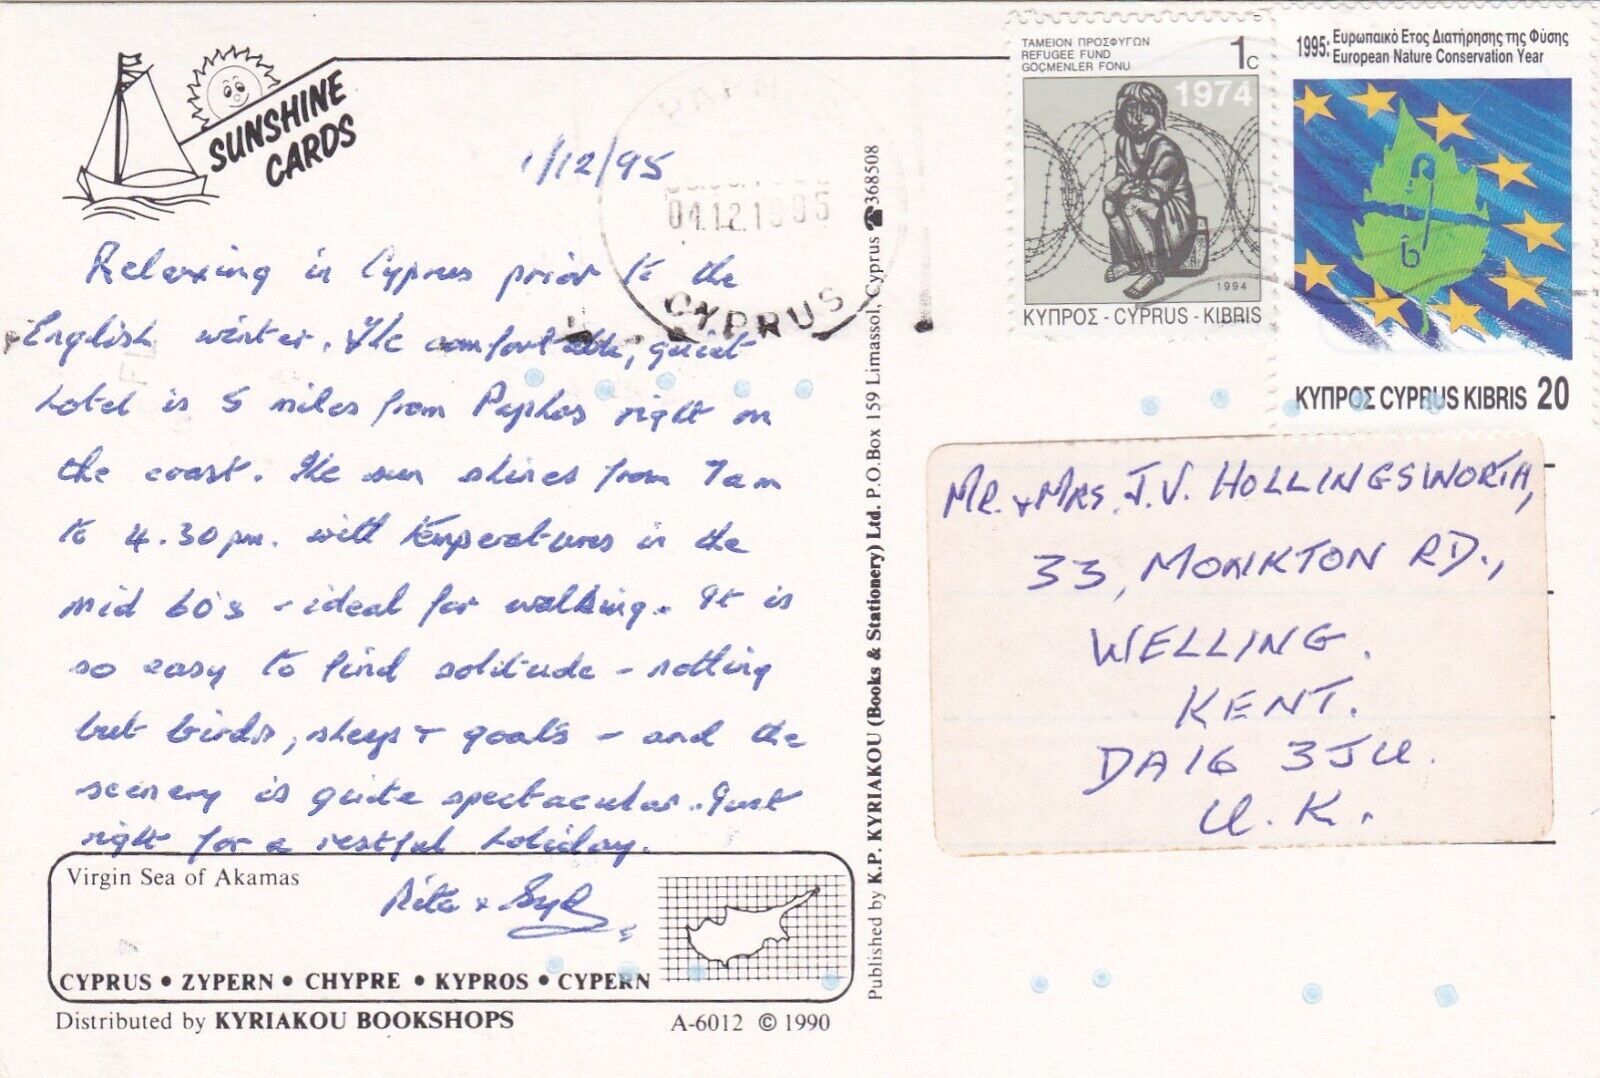 SUNSHINE
CARDS
1/12/95
04.12.1995
CYPRUS
Relaxing in Cyprus prior to the
English winter. The comfortable, quiet
hotel is 5 miles from Paphos right on
the coast. The sun shines from 7am
to 4.30pm. with temperatures in the
mid 60's - ideal for walking. It is
so easy to find solitude - nothing
but birds, sheep + goats - and the
scenery is quite spectacular. Just
right for a restful holiday.
Rita + Syd
Virgin Sea of Akamas
CYPRUS • ZYPERN • CHYPRE • KYPROS • CYPERN
Distributed by KYRIAKOU BOOKSHOPS
A-6012 © 1990
Published by K.P. KYRIAKOU (Books & Stationery) Ltd. P.O.Box 159 Limassol, Cyprus ☎368508
ΤΑΜΕΙΟΝ ΠΡΟΣΦΥΓΩΝ
REFUGEE FUND
GÖÇMENLER FONU
1c
1974
1994
ΚΥΠΡΟΣ - CYPRUS - KIBRIS
1995: Ευρωπαϊκό Έτος Διατήρησης της Φύσης
European Nature Conservation Year
ΚΥΠΡΟΣ CYPRUS KIBRIS 20
MR. + MRS. J.V. HOLLINGSWORTH,
33, MONKTON RD.,
WELLING.
KENT.
DA16 3JU.
U.K.